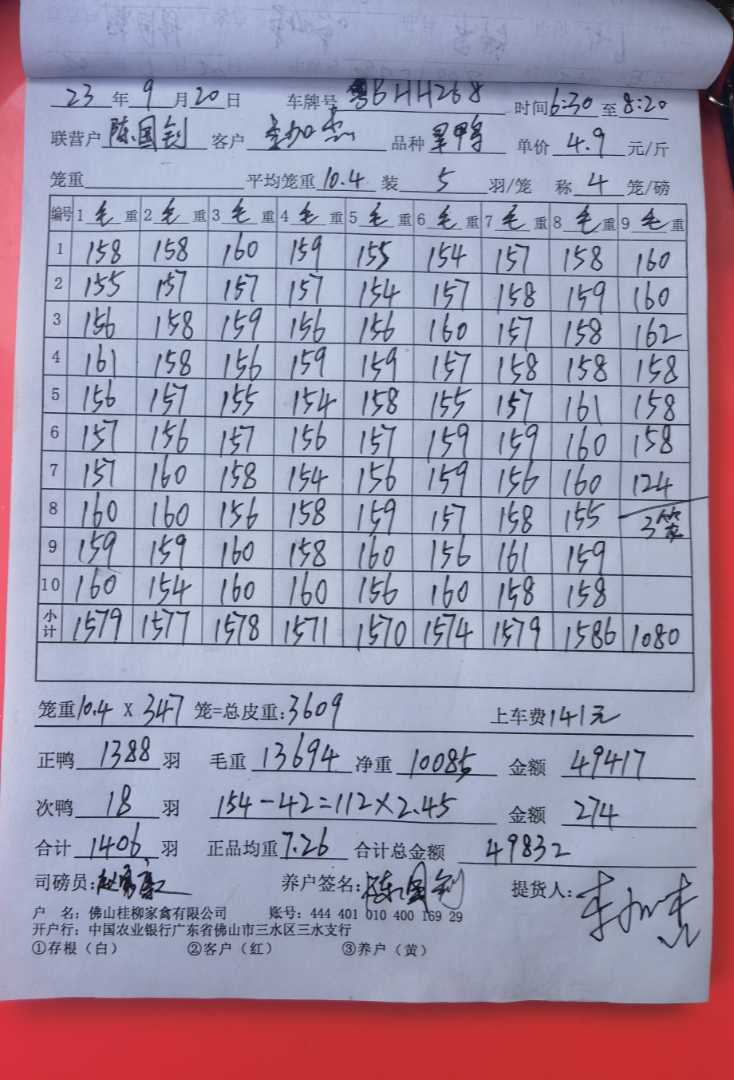 23年9月20日 车牌号 粤BHH268 时间6:30至8:20
联营户 陈国钊 客户 李加杰 品种 旱鸭 单价 4.9 元/斤
笼重 平均笼重10.4 装 5 羽/笼 称 4 笼/磅
编号 1 毛 重 2 毛 重 3 毛 重 4 毛 重 5 毛 重 6 毛 重 7 毛 重 8 毛 重 9 毛 重
1 158 158 160 159 155 154 157 158 160
2 155 157 157 157 154 157 158 159 160
3 156 158 159 156 156 160 157 158 162
4 161 158 156 159 159 157 158 158 158
5 156 157 155 154 158 155 157 161 158
6 157 156 157 156 157 159 159 160 158
7 157 160 158 154 156 159 156 160 124
8 160 160 156 158 159 157 158 155 3笼
9 159 159 160 158 160 156 161 159
10 160 154 160 160 156 160 158 158
小计 1579 1577 1578 1571 1570 1574 1579 1586 1080
笼重10.4 X 347 笼=总皮重:3609 上车费141元
正鸭 1388 羽 毛重 13694 净重 10085 金额 49417
次鸭 18 羽 154-42=112×2.45 金额 274
合计 1406 羽 正品均重7.26 合计总金额 49832
司磅员: 养户签名:陈国钊 提货人:李加杰
户 名: 佛山桂柳家禽有限公司 账号: 444 401 010 400 169 29
开户行: 中国农业银行广东省佛山市三水区三水支行
①存根(白) ②客户(红) ③养户(黄)